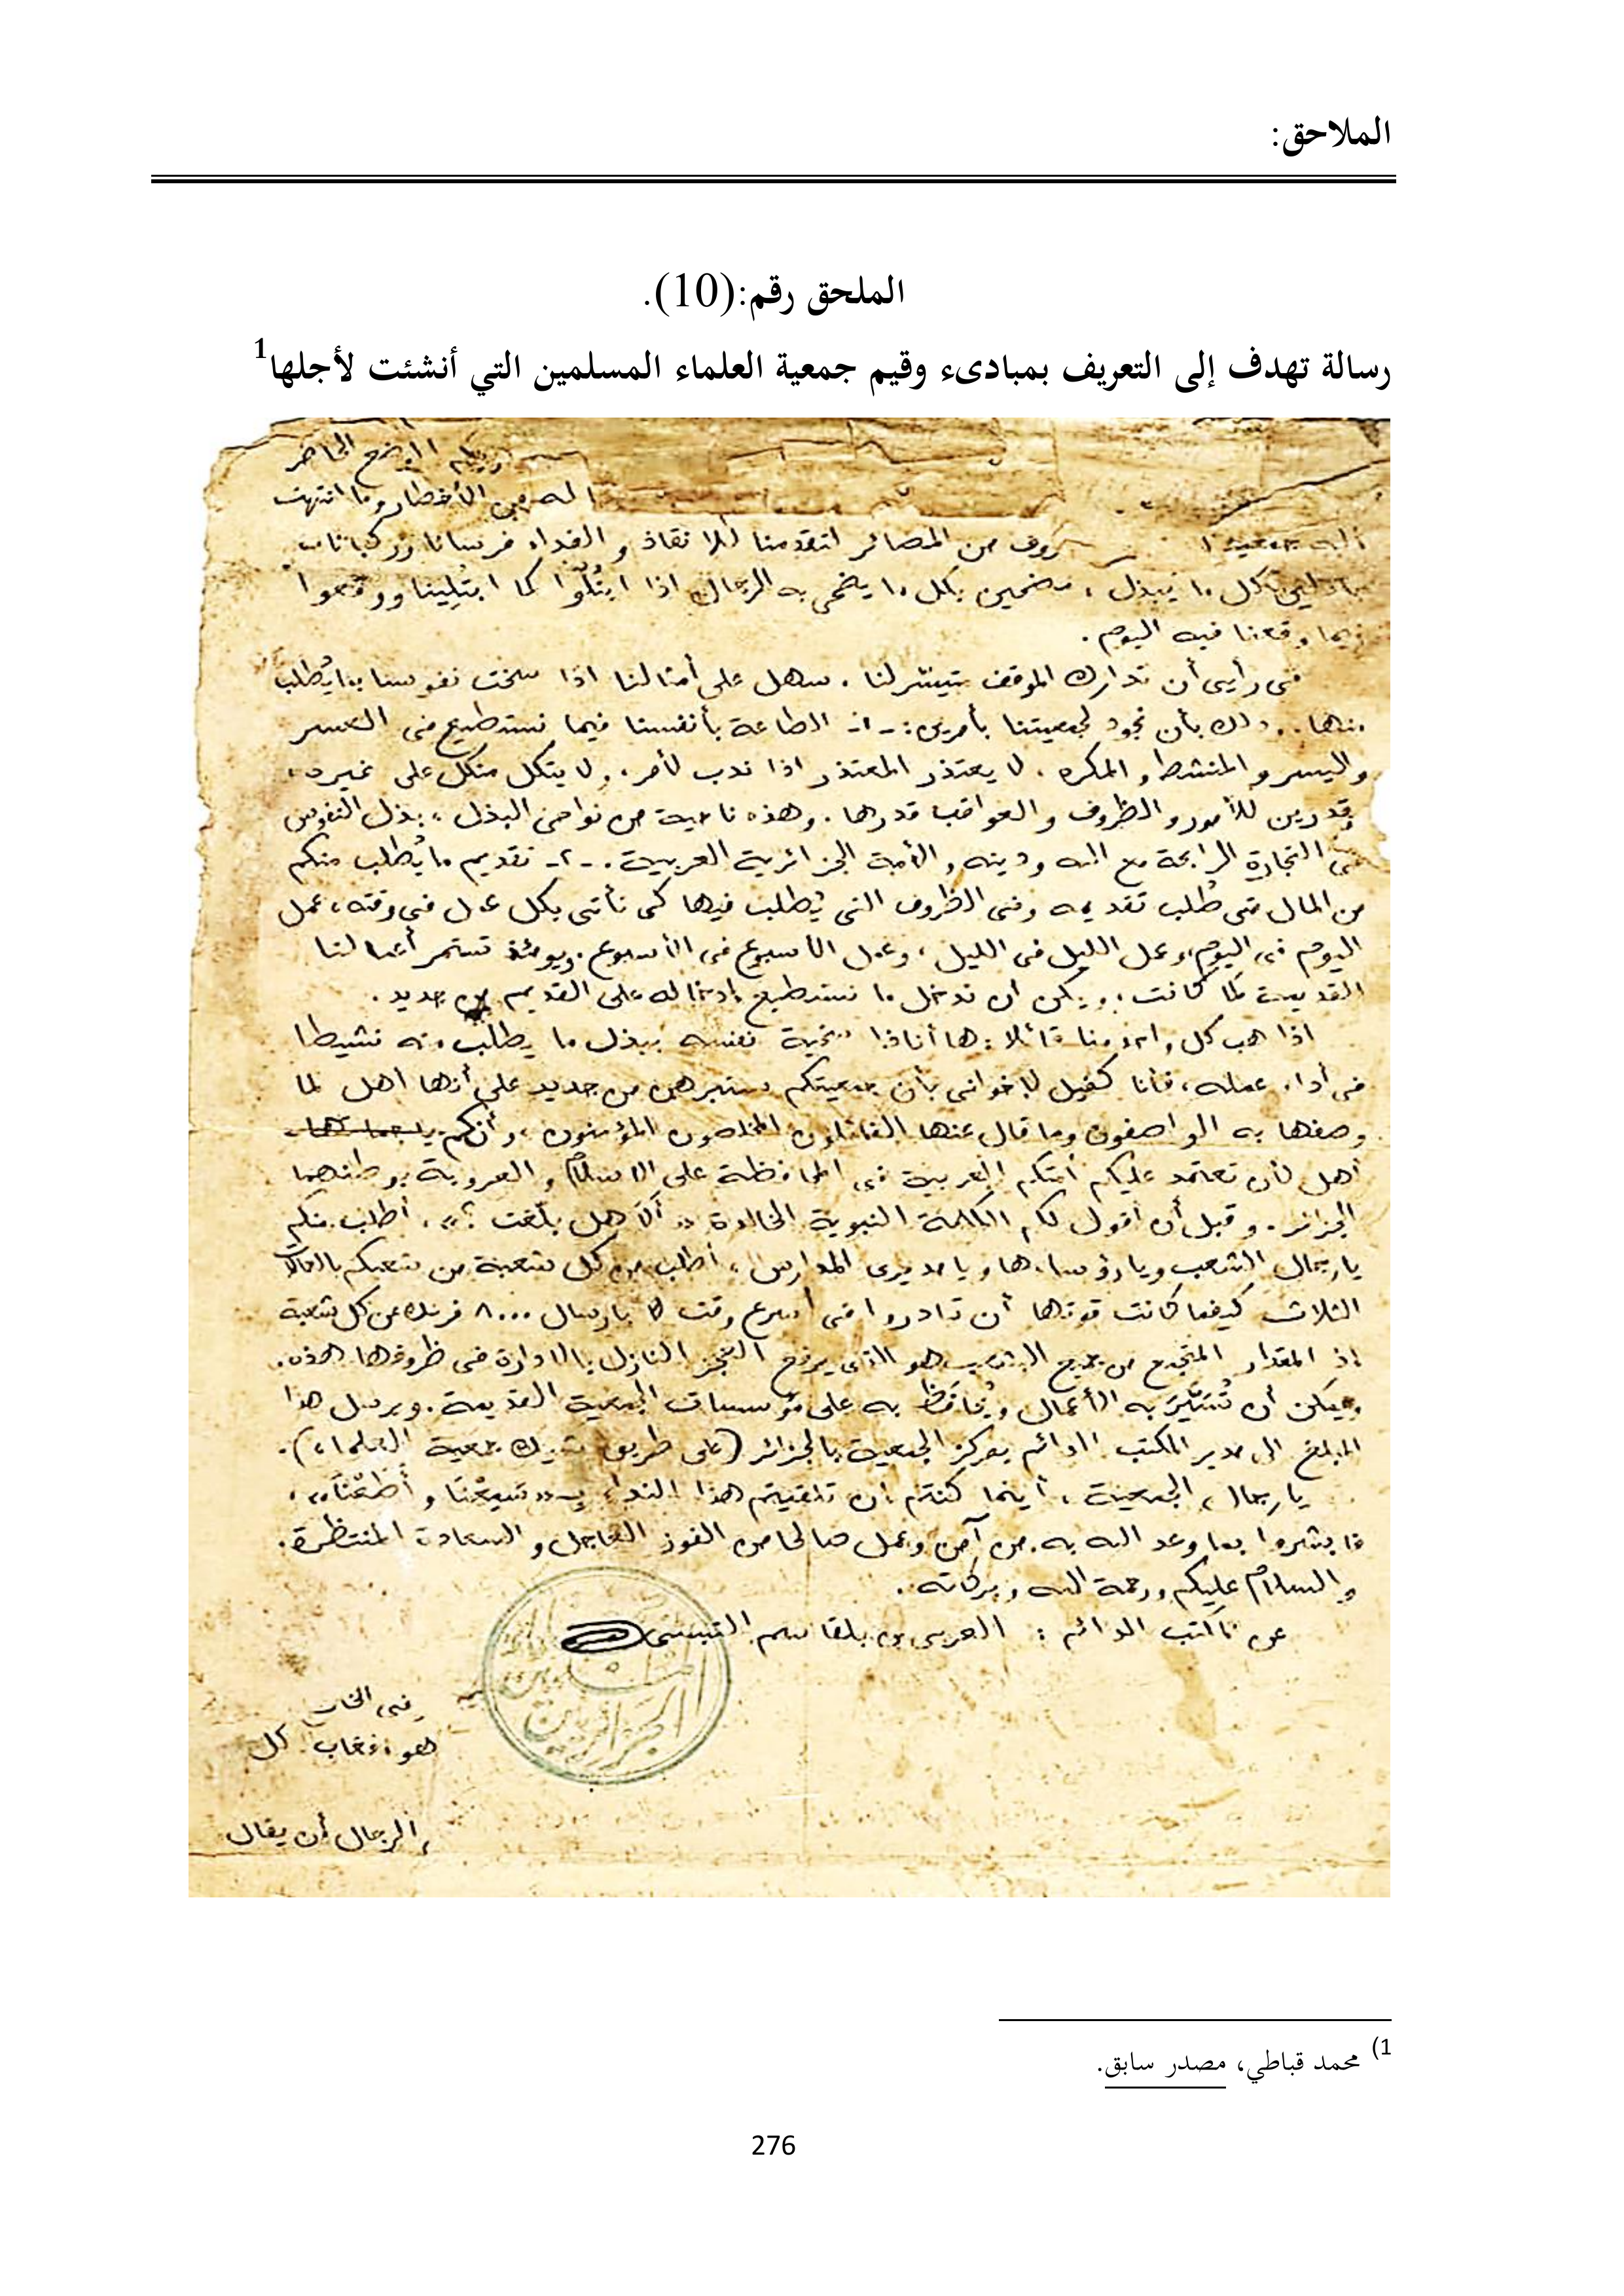 الملاحق:
الملحق رقم:(10).
رسالة تهدف إلى التعريف بمبادىء وقيم جمعية العلماء المسلمين التي أنشئت لأجلها1
الوضع الحاضر
الله من الأخطار وما انتهت
من المصائر لتقدمنا للانقاذ والفداء فرسانا وركبانا
باذلين كل ما يبذل، مضحين بكل ما يضحى به الرجال اذا ابتُلُوا كما ابتُلِينا ووقعوا
فيما وقعنا فيه اليوم.
فى رأيى أن تدارك الموقف متيسّر لنا. سهل على أمثالنا اذا سخت نفوسنا بما يُطلب
منها.. وذلك بأن نجود لجمعيتنا بأمرين: -1- الطاعة بأنفسنا فيما نستطيع فى العسر
واليسر والمنشط والمكره. لا يعتذر المعتذر اذا ندب لأمر. ولا يتكل متكل على غيره،
مقدرين للأمور والظروف والعواقب قدرها. وهذه ناحية من نواحى البذل، بذل النفوس
هى التجارة الرابحة مع الله ودينه والأمة الجزائرية العربية. -2- تقديم ما يُطلب منكم
من المال متى طُلب تقديمه وفى الظروف التى يُطلب فيها كى نأتى بكل عمل فى وقته، عمل
اليوم فى اليوم، وعمل الليل فى الليل، وعمل الأسبوع فى الأسبوع. ويومئذ تستمر أعمالنا
القديمة كما كانت، ويمكن ان ندخل ما نستطيع إدخاله على القديم من جديد.
اذا هب كل واحد منا قائلا: ها أنا ذا سخية نفسه ببذل ما يطلب منه نشيطا
فى أداء عمله، فأنا كفيل لإخوانى بأن جمعيتكم ستبرهن من جديد على أنها أهل لما
وصفها به الواصفون وما قال عنها القائلون المخلصون المؤمنون، وأنكم
أهل لأن تعتمد عليكم أمتكم العربية فى المحافظة على الاسلام والعروبة بوطنهما
الجزائر. وقبل أن أقول لكم الكلمة النبوية الخالدة «ألا هل بلّغت؟»، أطلب منكم
يا رجال الشعب ويا رؤساءها ويا مديرى المدارس، أطلب من كل شعبة من شعبكم بالعمالات
الثلاث كيفما كانت قوتها أن تبادروا فى أسرع وقت بارسال 8000 فرنك من كل شعبة
إذ المقدار المتجمع من جميع الشعب هو الذى يرفع العجز النازل بالادارة فى ظروفها هذه.
ويمكن أن تُسَيَّرَ به الأعمال ويُحَافَظَ به على مؤسسات الجمعية القديمة. ويرسل هذا
المبلغ الى مدير المكتب الدائم بمركز الجمعية بالجزائر (على طريق شيك جمعية العلماء).
يا رجال الجمعية، أينما كنتم ان تلقيتم هذا النداء بـ«سَمِعْنَا وأَطَعْنَا»،
فابشروا بما وعد الله به من آمن وعمل صالحا من الفوز العاجل والسعادة المنتظرة.
والسلام عليكم ورحمة الله وبركاته.
عن المكتب الدائم: العربى بن بلقاسم التبسى
المسلمين
الجزائريين
فى
هو كل
الرجال أن يقال
1) محمد قباطي، مصدر سابق.
276